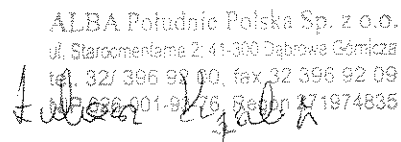 ALBA Południe Polska Sp. z o.o.
ul. Starocmentarna 2; 41-300 Dąbrowa Górnicza
tel. 32/ 396 92 00, fax 32 396 92 09
Regon 271974835